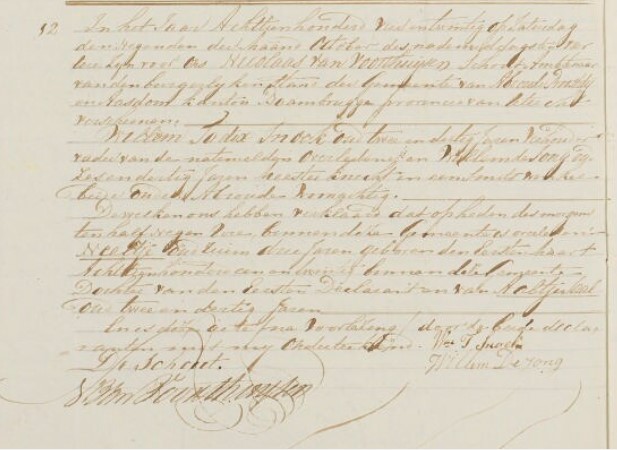 12 In het Jaar Achttienhonderd vier en twintig op Zaturdag
den negenden der maand October des nademiddags ten vier
ure zyn voor ons Nicolaas van Voorthuijsen Schout Ambtenaar
van den burgerlyken Stand der Gemeente van Abcoude Proostdy
en Aasdom kanton Loenen provincie van Utrecht
verschenen
Willem Snoek oud twee en dertig Jaren
vader van de na te melden Overledene en Willem de Jong oud
zes en dertig Jaren knecht
beide onder Abcoude Woonachtig.
Dewelken ons hebben verklaard dat op heden des morgens
ten half negen Ure, binnen deze Gemeente is overleden
Neeltje oud ruim drie Jaren geboren den Eersten Maart
Achttienhonderd een en twintig binnen deze Gemeente
Dochter van den Eersten Declarant en van
oud twee en dertig Jaren
En is deze acte na Voorlezing door de beide decla
ranten met my Ondertekend. Wm T Snoek
De Schout. Willem De Jong
N van Voorthuijsen